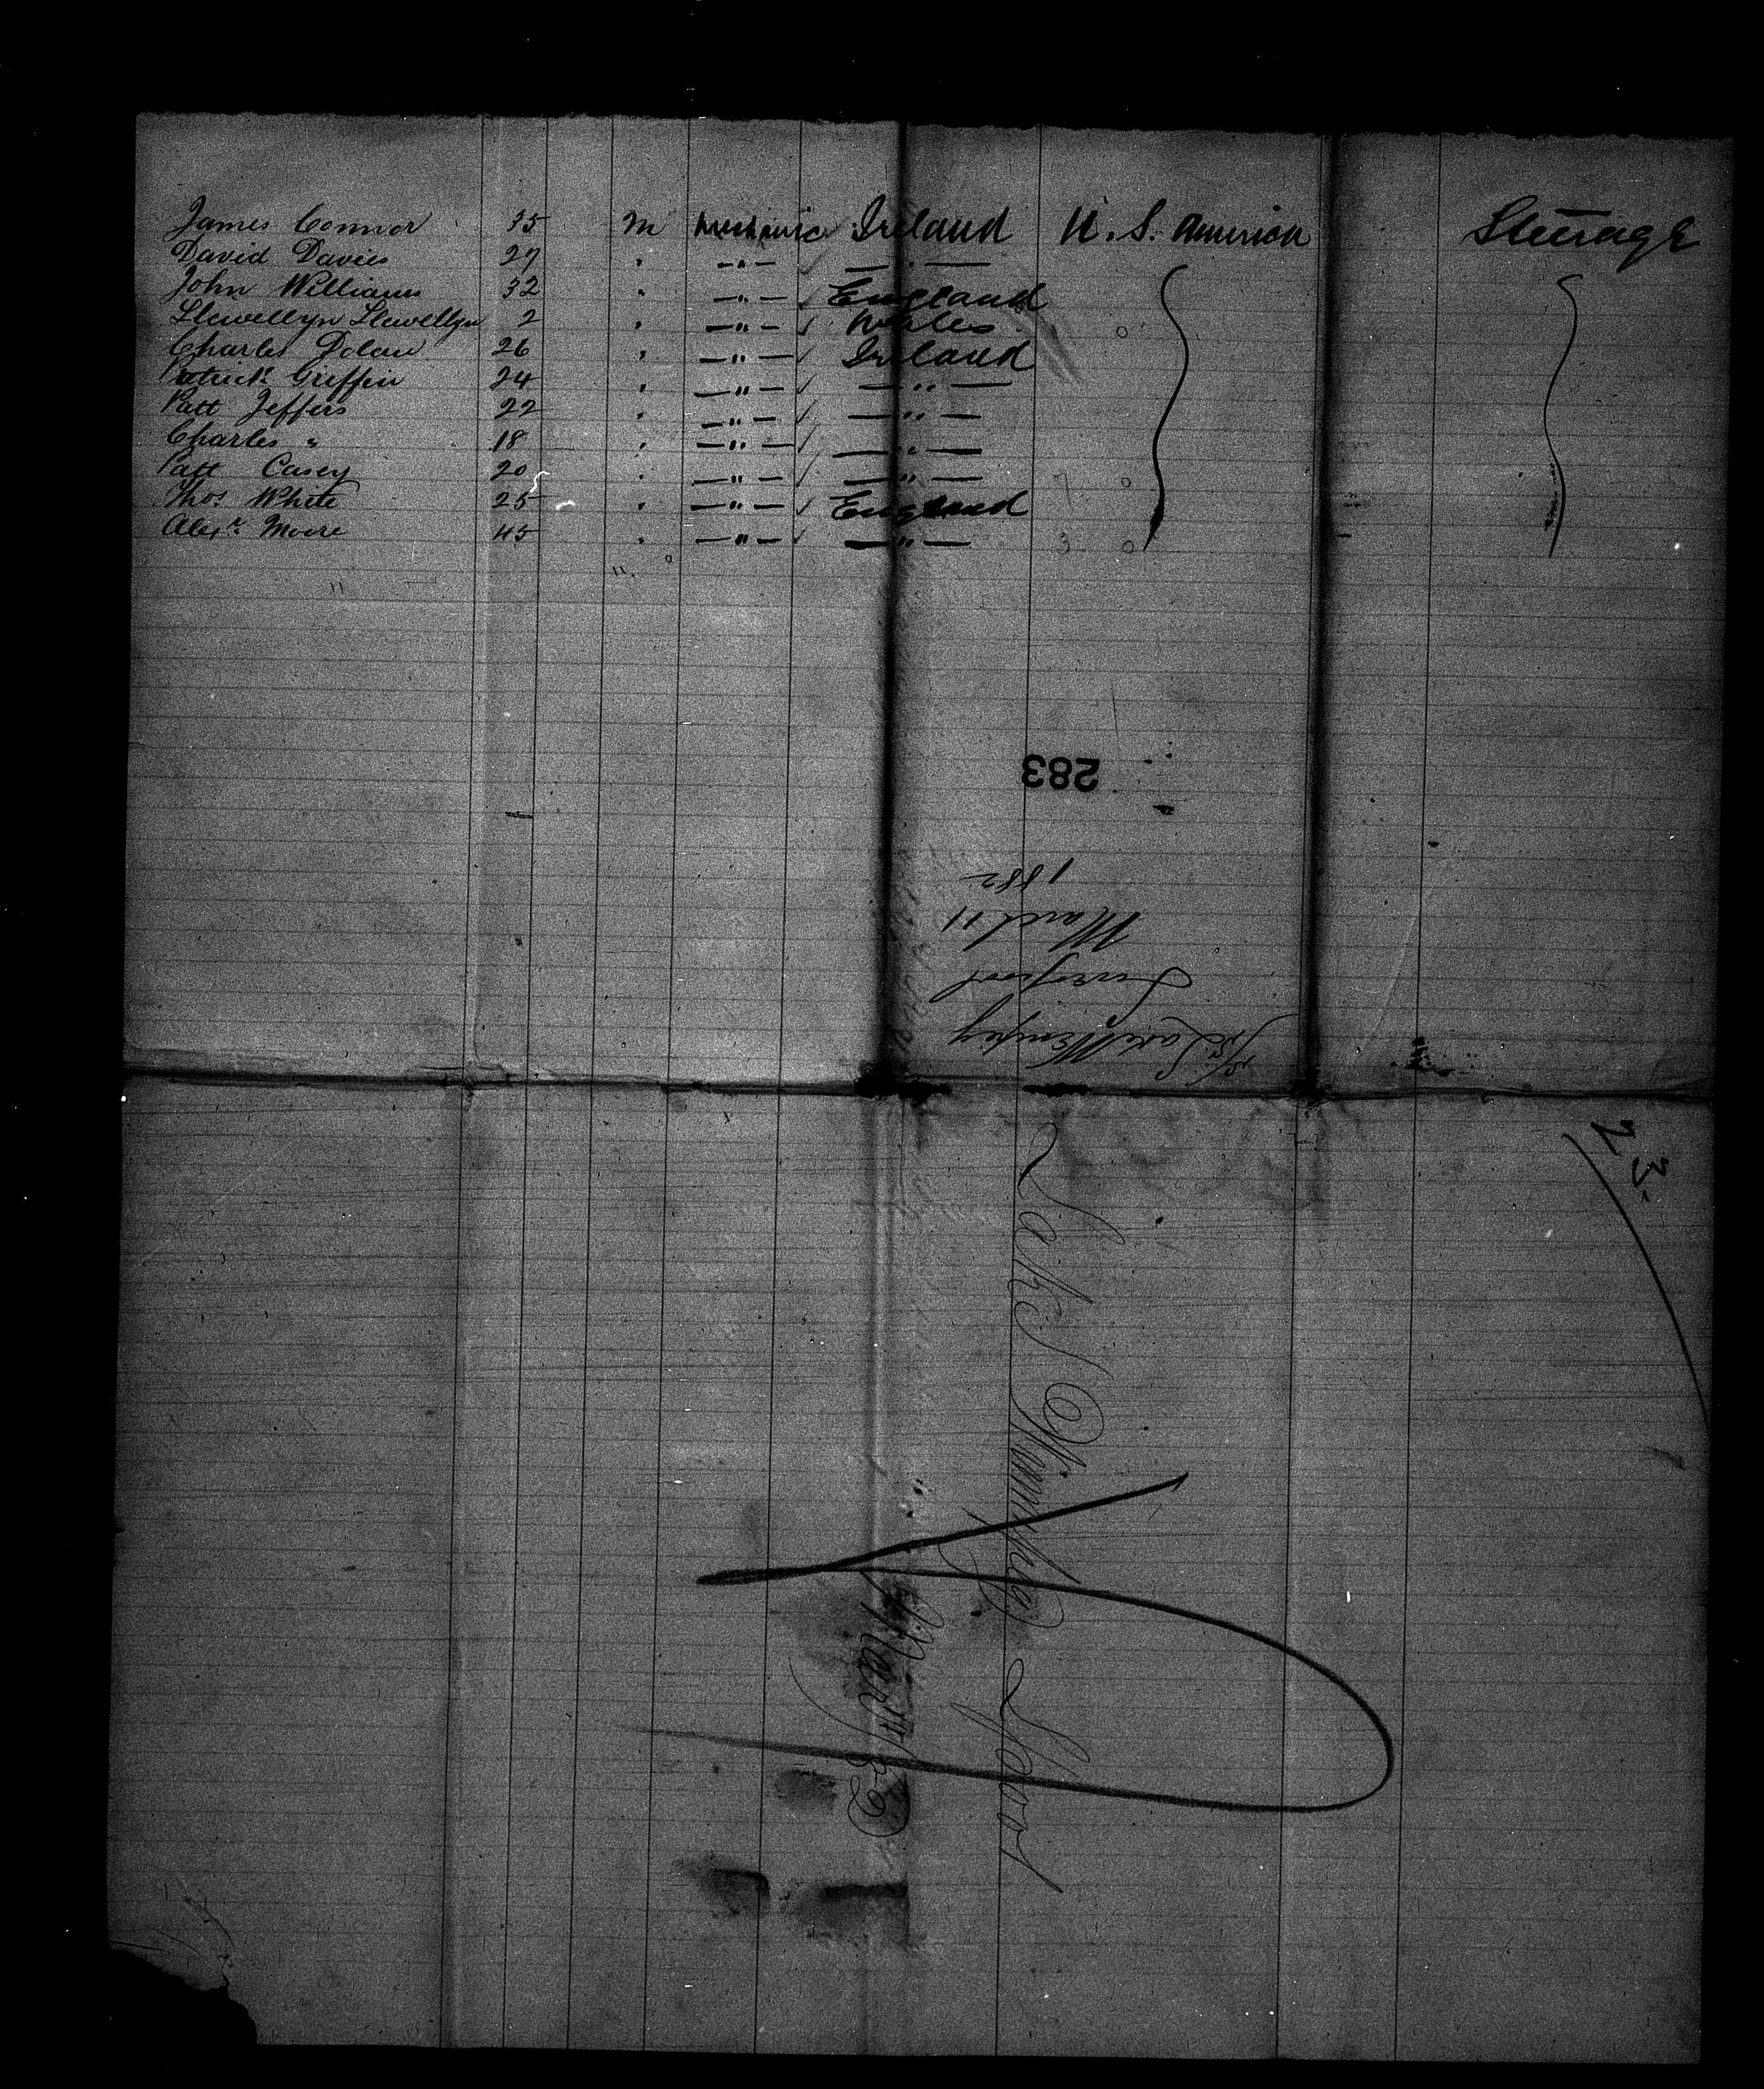 James Connor 35 m mechanic Ireland U. S. America Steerage
David Davies 27 " —"— —"—
John Williams 32 " —"— England
Llewellyn Llewellyn 2 " —"— Wales
Charles Dolan 26 " —"— Ireland
Patrick Griffin 24 " —"— —"—
Patt Jeffers 22 " —"— —"—
Charles " 18 " —"— —"—
Patt Casey 20 " —"— —"—
Thos. White 25 " —"— England
Alexr. Moore 45 " —"— —"—
283
S/S Lake Winnipeg
Liverpool
March 11
1882
23.
Lake Winnipeg